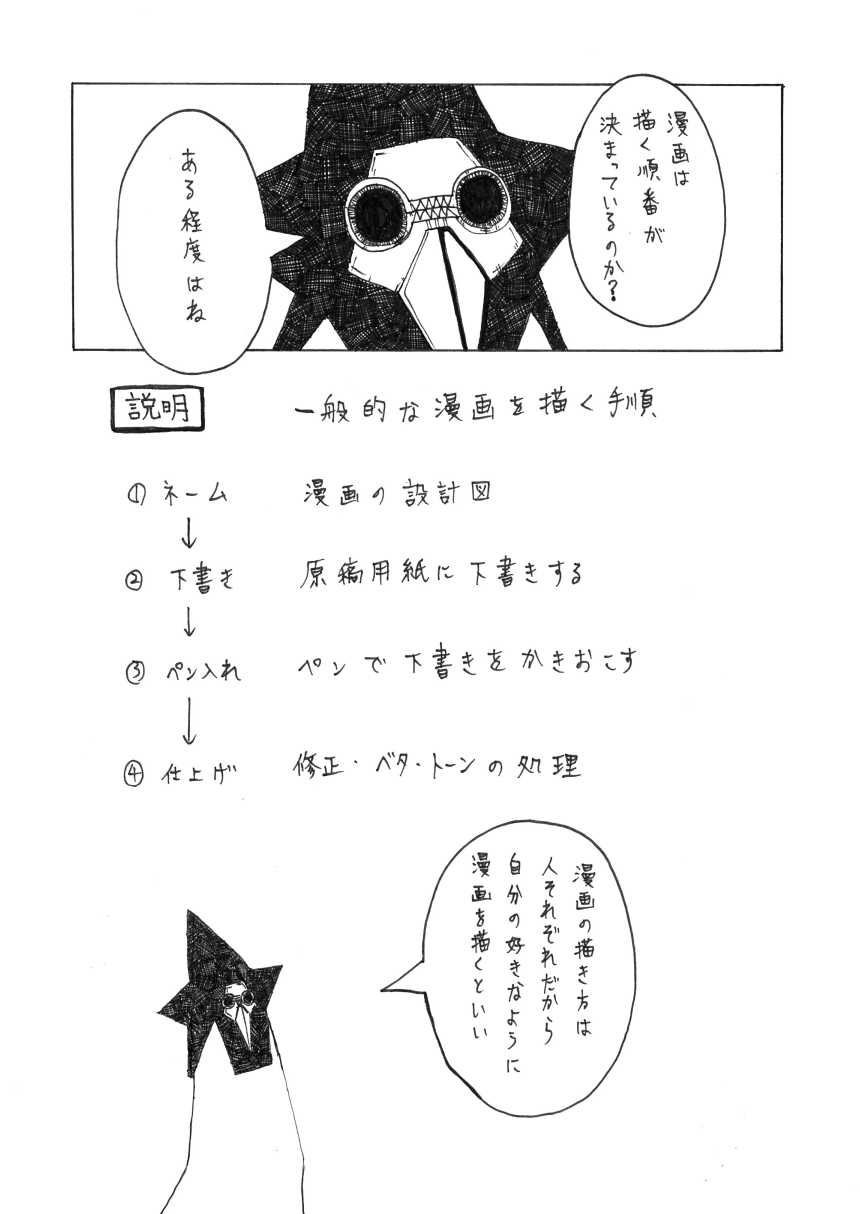 漫画は
描く順番が
決まっているのか?
ある程度はね
説明 一般的な漫画を描く手順
① ネーム 漫画の設計図
↓
② 下書き 原稿用紙に下書きする
↓
③ ペン入れ ペンで下書きをかきおこす
↓
④ 仕上げ 修正・ベタ・トーンの処理
漫画の描き方は
人それぞれだから
自分の好きなように
漫画を描くといい